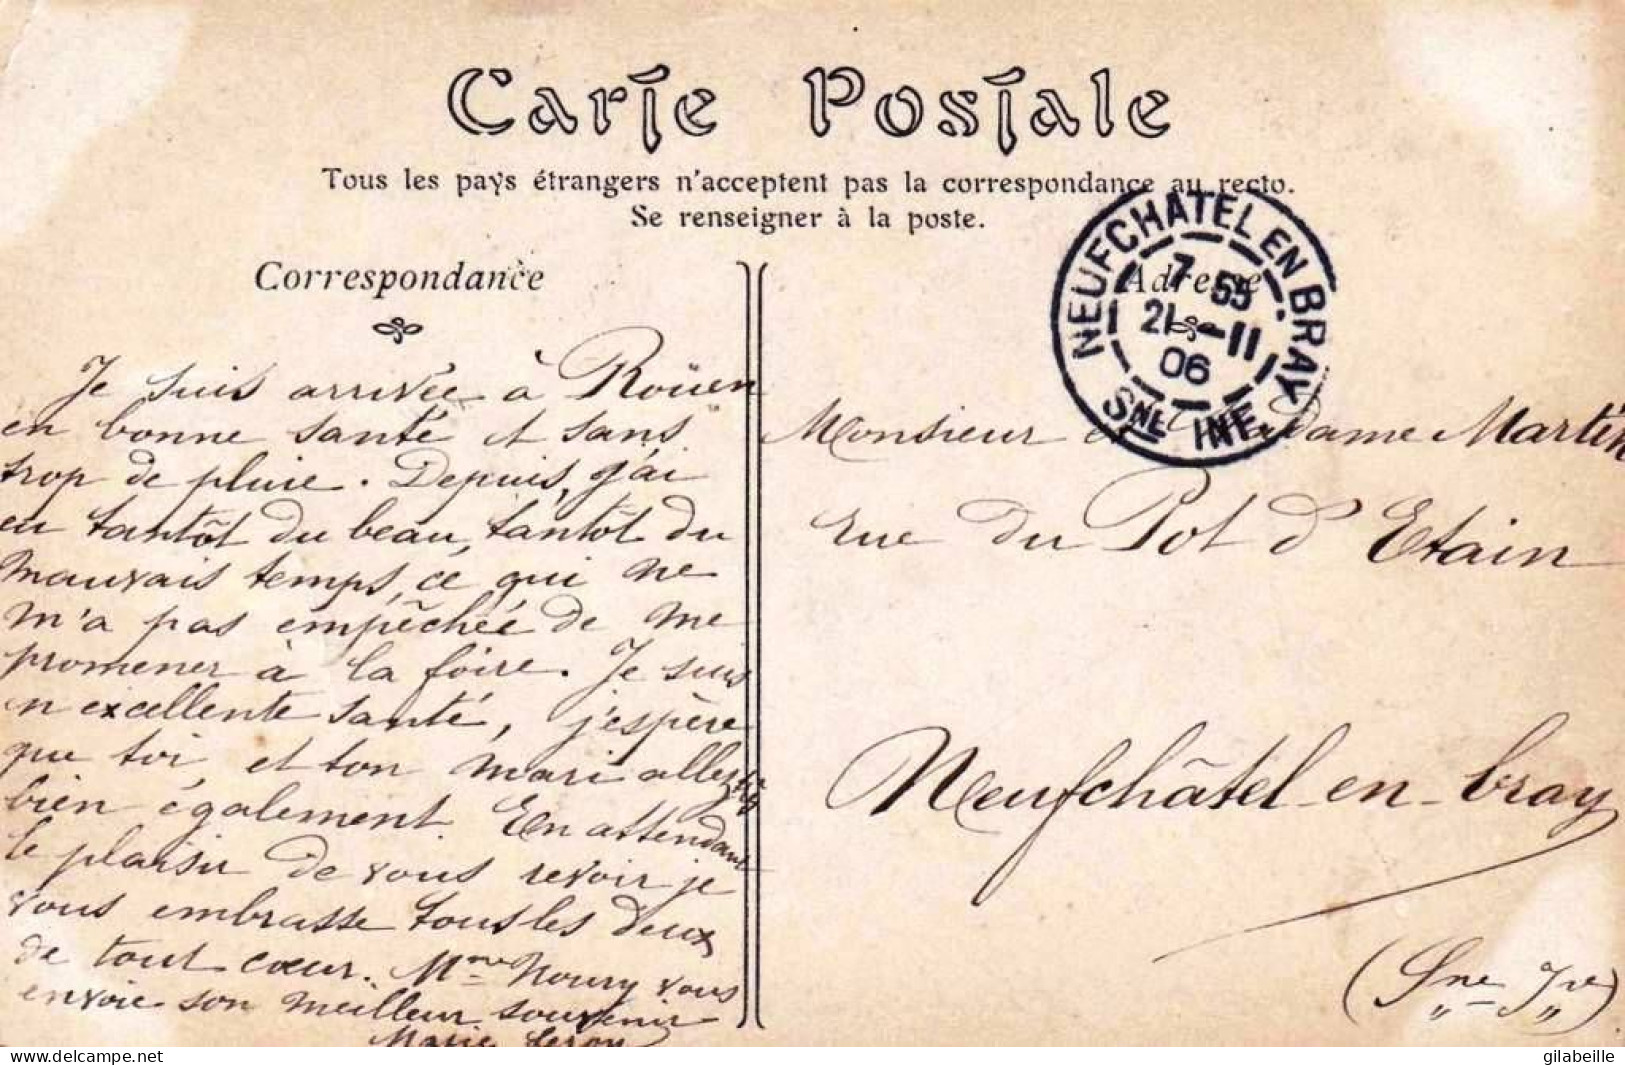 Carte Postale
Tous les pays étrangers n'acceptent pas la correspondance au recto.
Se renseigner à la poste.
Correspondance
Je suis arrivée à Roüen
en bonne santé et sans
trop de pluie. Depuis, j'ai
eu tantôt du beau, tantôt du
mauvais temps, ce qui ne
m'a pas empêchée de me
promener à la foire. Je suis
en excellente santé, j'espère
que toi, et ton mari allez
bien également. En attendant
le plaisir de vous revoir je
vous embrasse tous les deux
de tout cœur. Mme Noury vous
envoie son meilleur souvenir
Marie Leroy
Adresse
NEUFCHATEL EN BRAY
7 55
21 - 11
06
SNE INFRE
Monsieur et Madame Martin
rue du Pot d'Etain
Neufchâtel-en-bray
(Sne Ire)
www.delcampe.net
gilabeille